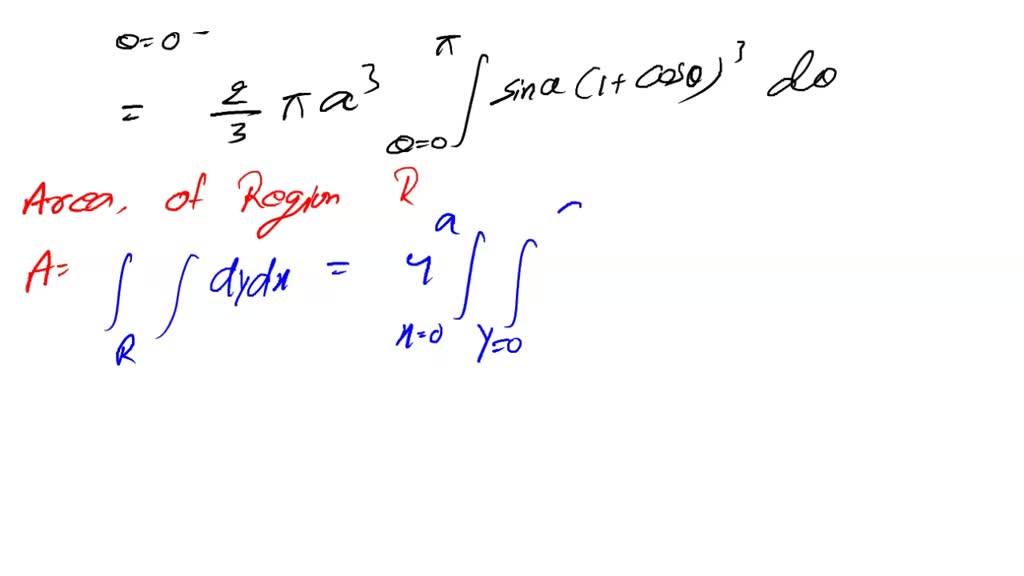 θ=0
= 2/3 π a³ ∫_{θ=0}^{π} sina (1 + cosθ)³ dθ
Area, of Region R
A= ∫_R ∫ dydx = 4 ∫_{x=0}^{a} ∫_{y=0}